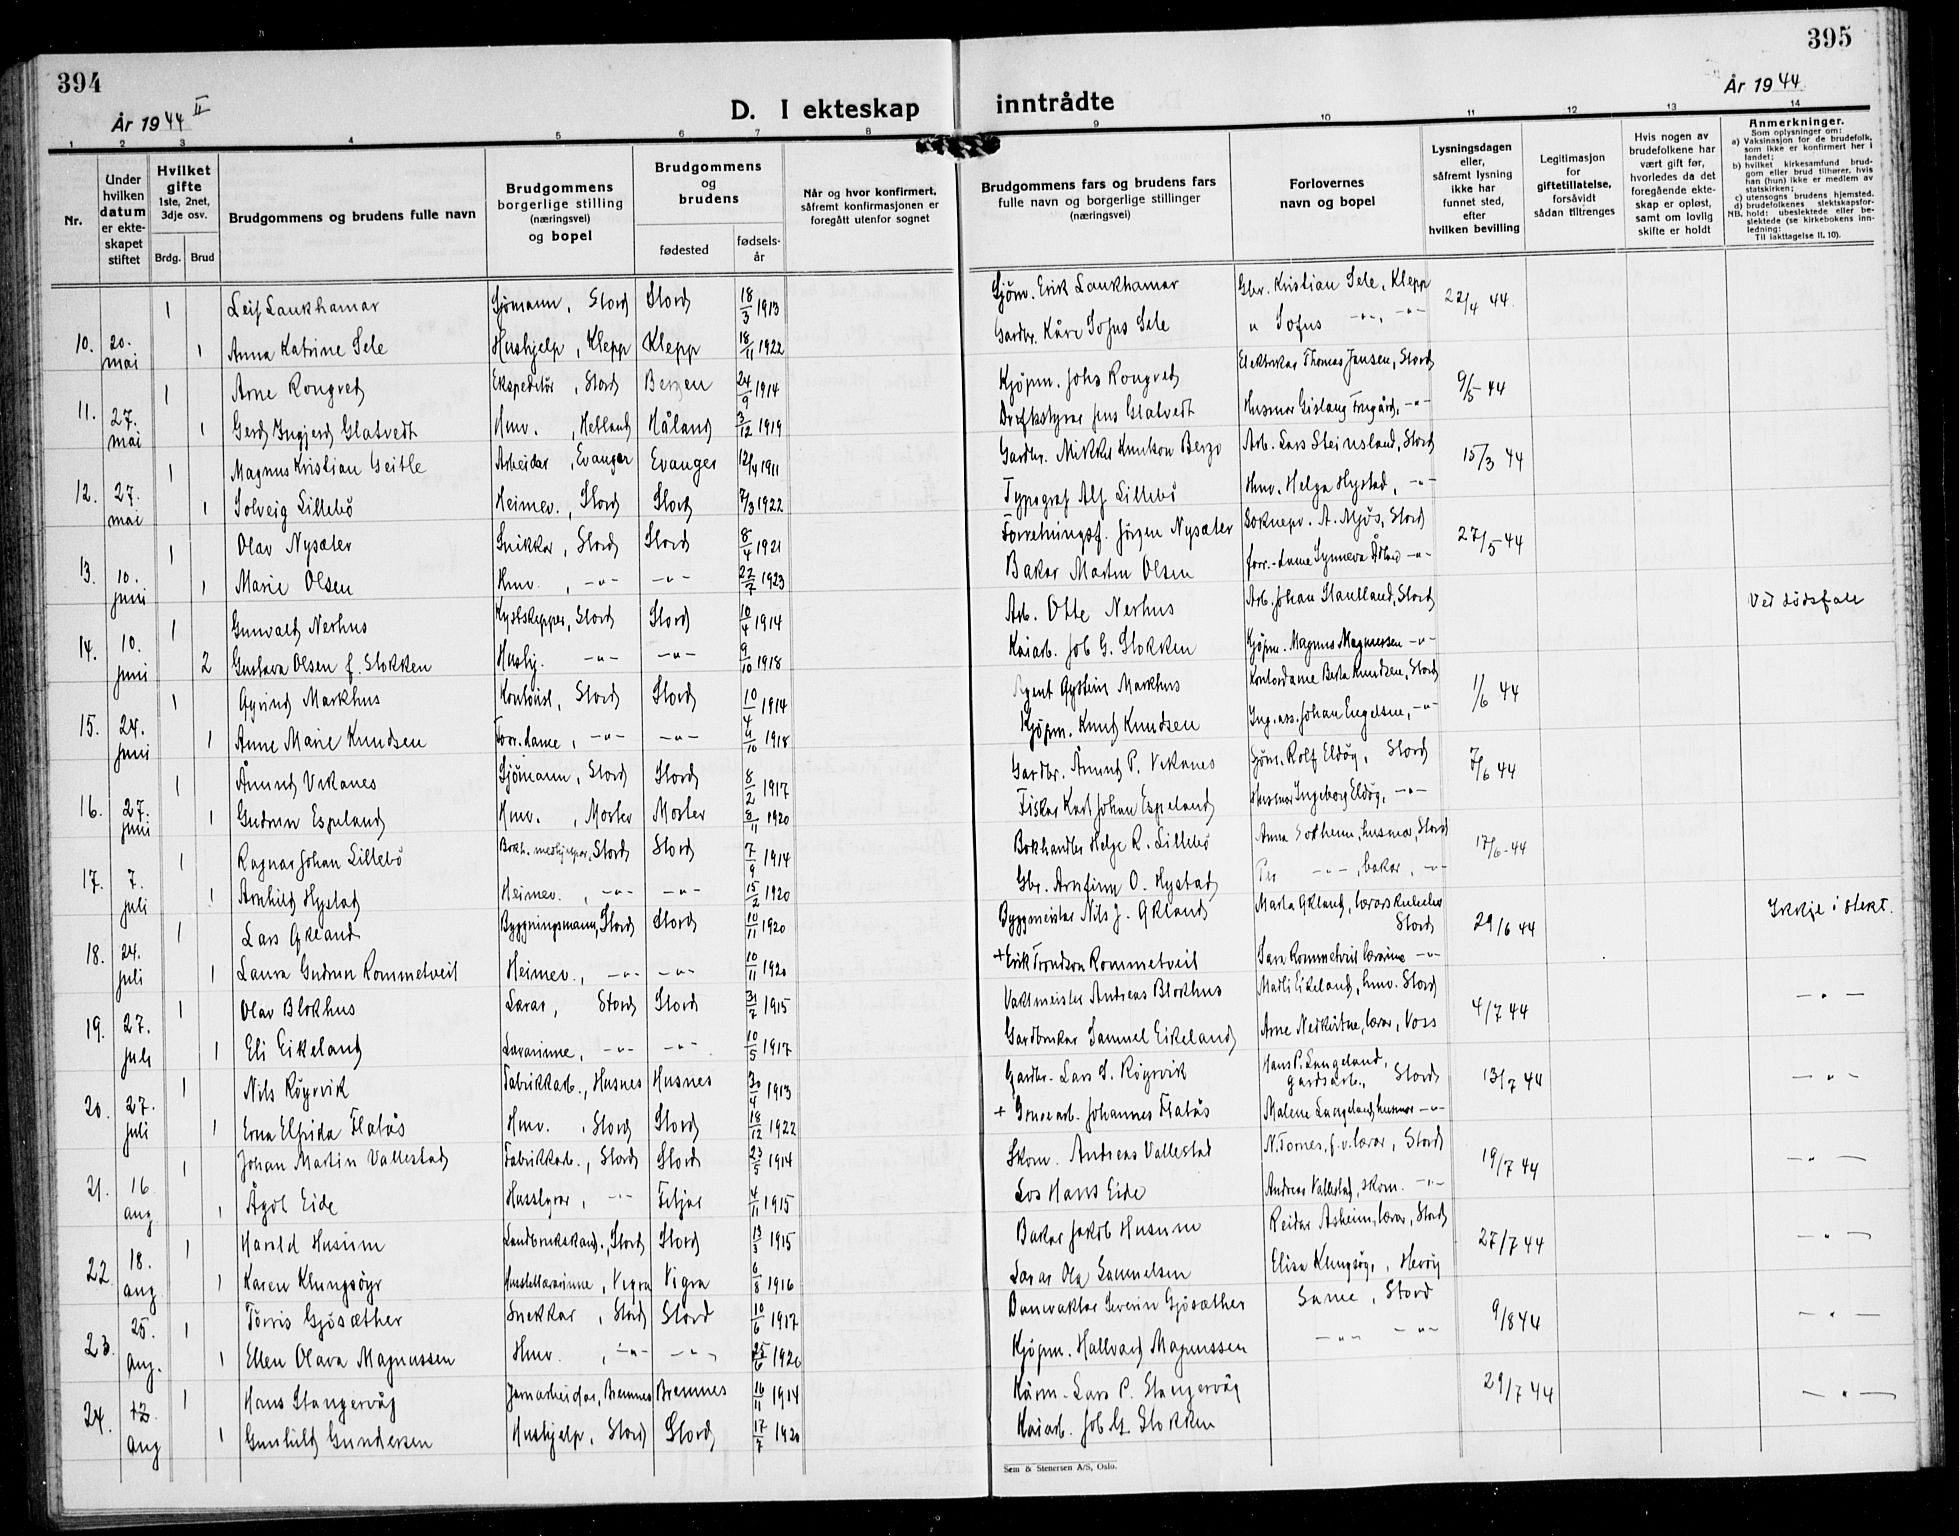 394
År 1944 II
D. I ekteskap
1 2 3 4 5 6 7 8
Nr.
Under hvilken datum er ekteskapet stiftet
Hvilket gifte 1ste, 2net, 3dje osv.
Brdg. Brud
Brudgommens og brudens fulle navn
Brudgommens borgerlige stilling (næringsvei) og bopel
Brudgommens og brudens
fødested
fødselsår
Når og hvor konfirmert, såfremt konfirmasjonen er foregått utenfor sognet
1 Leif Laukhamar Sjömann, Stord Stord 18/3 1913
10. 20. mai 1 Anna Katrine Sele Hushjelp, Klepp Klepp 18/11 1922
1 Arne Rongved Ekspeditör, Stord Bergen 24/9 1914
11. 27. mai 1 Gerd Ingjerd Glatvedt Hmv., Hetland Håland 3/12 1919
1 Magnus Kristian Geitle Arbeidar, Evanger Evanger 12/4 1911
12. 27. mai 1 Solveig Lillebö Heimev., Stord Stord 7/3 1922
1 Olav Nysæter Snikkar, Stord Stord 8/4 1921
13. 10. juni 1 Marie Olsen Hmv., -"- -"- 22/7 1923
1 Gunvald Nerhus Kystskipper, Stord Stord 10/4 1914
14. 10. juni 2 Gustava Olsen f. Stokken Hushj. -"- -"- 9/10 1918
1 Øyvind Markhus Kontorist, Stord Stord 10/4 1914
15. 24. juni 1 Anne Marie Knudsen Forr.dame, -"- -"- 4/10 1918
1 Åmund Vikanes Sjömann, Stord Stord 8/2 1917
16. 27. juni 1 Gudrun Espeland Hmv., Moster Moster 8/11 1920
1 Ragnar Johan Lillebö Bokh.medhjelpar, Stord Stord 7/9 1914
17. 7. juli 1 Arnhild Hystad Heimev., -"- -"- 15/2 1920
1 Lars Økland Byggningsmann, Stord Stord 10/11 1920
18. 24. juli 1 Laura Gudrun Rommetveit Heimev., -"- -"- 10/11 1920
1 Olav Blokhus Lærar, Stord Stord 31/7 1915
19. 27. juli 1 Eli Eikeland Lærarinne, -"- -"- 10/5 1917
1 Nils Röyrvik Fabrikkarb., Husnes Husnes 30/4 1913
20. 27. juli 1 Erna Elfrida Flatås Hmv., Stord Stord 18/12 1922
1 Johan Martin Vallestad Fabrikkarb., Stord Stord 23/5 1914
21. 16. aug 1 Ågot Eide Husstyrar, -"- Fitjar 4/11 1915
1 Harald Husum Landbrukskand., Stord Stord 13/3 1915
22. 18. aug 1 Karen Klungsöyr Husstellærarinne, Vigra Vigra 6/8 1916
1 Torris Gjösæther Snekkar, Stord Stord 10/6 1917
23. 25. aug. 1 Ellen Olava Magnussen Hmv., -"- -"- 25/6 1920
1 Hans Stangervåg Jernarbeidar, Bremnes Bremnes 16/11 1914
24. 12. aug 1 Gunhild Gundersen Hushjelp, Stord Stord 17/7 1920
395
År 1944
inntrådte
9 10 11 12 13 14
Brudgommens fars og brudens fars fulle navn og borgerlige stillinger (næringsvei)
Forlovernes navn og bopel
Lysningsdagen eller, såfremt lysning ikke har funnet sted, efter hvilken bevilling
Legitimasjon for giftetillatelse, forsåvidt sådan tiltrenges
Hvis nogen av brudefolkene har vært gift før, hvorledes da det foregående ekteskap er opløst, samt om lovlig skifte er holdt
Anmerkninger.
Som oplysninger om:
a) Vaksinasjon for de brudefolk, som ikke er konfirmert her i landet;
b) hvilket kirkesamfund brudgom eller brud tilhører, hvis han (hun) ikke er medlem av statskirken;
c) utensogns brudens hjemsted.
d) brudefolkenes slektskapsforhold: ubeslektede eller beslektede (se kirkebokens innledning:
NB. Til iakttagelse II. 10).
Sjöm. Erik Laukhamar Gbr. Kristian Sele, Klepp 22/4 44.
Gardbr. Kåre Sofus Sele " Sofus -"-, -"-
Kjöpm. Johs Rongved Elektrikar Thomas Jensen, Stord 9/5 44
Driftstyrar Jens Glatvedt Husmor Gislaug Tregård, -"-
Gardbr. Mikkel Knutson Berge Arb. Lars Steinsland, Stord 15/3 44
Typograf Alf Lillebö Hmv. Helga Hystad, -"-
Forretningsf. Jörgen Nysæter Sokneprv. A. Mjös, Stord 27/5 44
Bakar Martin Olsen forr.-dame Synneva Ådland -"-
Arb. Otto Nerhus Arb. Johan Stautland, Stord Ved dödsfall
Kaiarb. Job G. Stokken Kjöpm. Magnus Magnussen -"-
Agent Øystein Markhus Kontordame Berta Knudsen, Stord 1/6 44
Kjöpm. Knud Knudsen Ing.ass. Johan Engelsen, -"-
Gardbr. Åmund P. Vikanes Sjöm. Rolf Eldöy, Stord 7/6 44
Fiskar Karl Johan Espeland Husmor Ingeborg Eldöy, -"-
Bokhandler Helge R. Lillebö Anna Sotheim, husmor, Stord 17/6-44
Gbr. Arnfinn O. Hystad Per -"-, bakar, -"-
Byggmeister Nils J. Økland Marta Økland, Stord 29/6 44 Ikkje i slekt.
+ Erik Trondson Rommetveit Sara Rommetveit lærarinne -"-
Vaktmeister Andreas Blokhus Matli Eikeland, hmv. Stord 4/7 44 -"-
Gardbrukar Samuel Eikeland Arne Nedkvitne, lærar, Voss
Gardbr. Lars S. Röyrvik Hans P. Langeland, gardsarb., Stord 13/7 44 -"-
+ Gruvearb. Johannes Flatås Malene Langeland, husmor -"-
Skom. Andreas Vallestad N. Tornes, f.v. lærar, Stord 19/7 44 -"-
Los Hans Eide Andreas Vallestad, skom. -"-
Bakar Jakob Husum Reidar Asheim, lærar, Stord 27/7 44 -"-
Lærar Ola Samuelsen Elisa Klungsöyr, Heröy
Banevaktar Severin Gjösæther Same, Stord 9/8 44 -"-
Kjöpm. Hallvard Magnussen -"- -"-
Kårm. Lars P. Stangervåg 29/7 44 -"-
Kaiarb. Job G. Stokken
Sem & Stenersen A/S, Oslo.